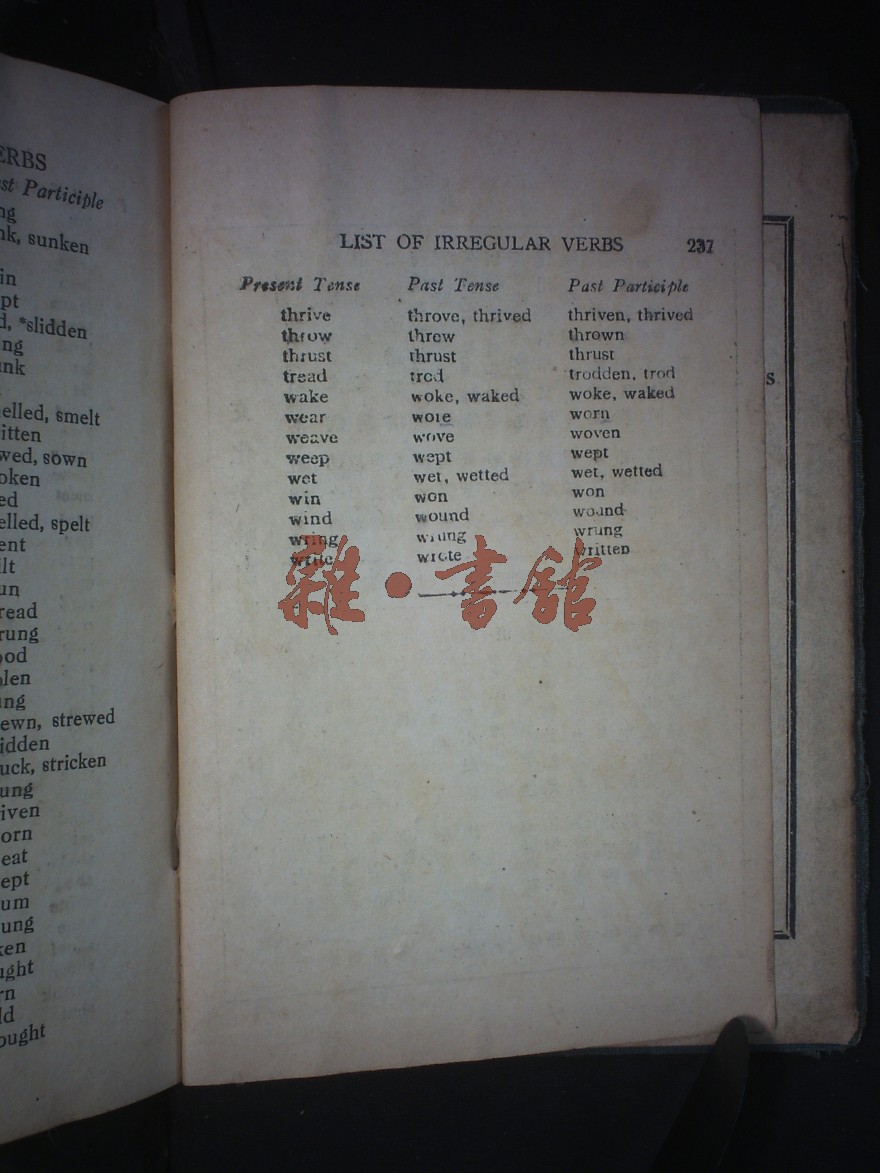 ERBS
st Participle
ng
nk, sunken
in
pt
d, *slidden
ng
unk
elled, smelt
itten
wed, sown
oken
ed
elled, spelt
ent
ilt
un
read
rung
ood
olen
ung
ewn, strewed
idden
uck, stricken
ung
iven
orn
eat
ept
um
ung
ken
ught
rn
ld
ought
LIST OF IRREGULAR VERBS 237
Present Tense Past Tense Past Participle
thrive throve, thrived thriven, thrived
throw threw thrown
thrust thrust thrust
tread trod trodden, trod
wake woke, waked woke, waked
wear wore worn
weave wove woven
weep wept wept
wet wet, wetted wet, wetted
win won won
wind wound wound
wring wrung wrung
write wrote written
雜·書館
S